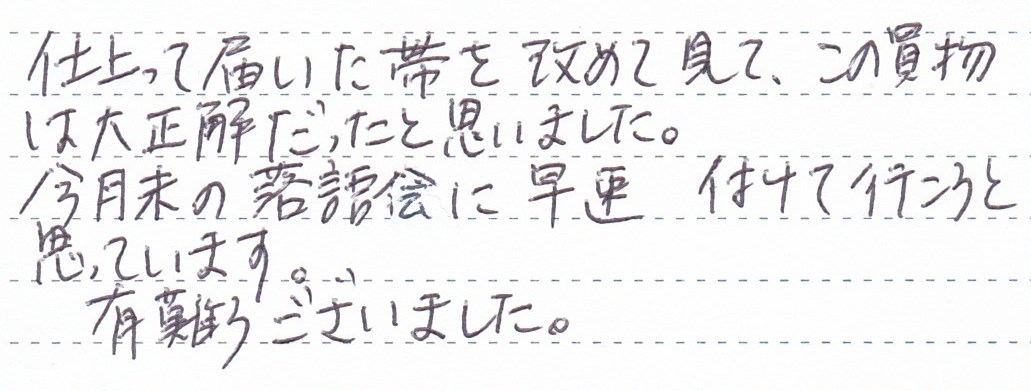 仕上って届いた帯を改めて見て、この買物
は大正解だったと思いました。
今月末の落語会に早速 付けて行こうと
思っています。
有難うございました。